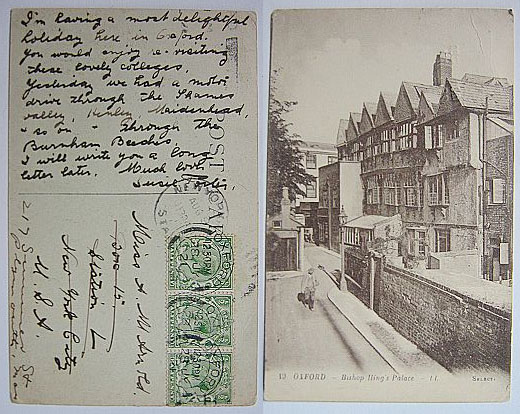 I'm having a most delightful
holiday here in Oxford.
You would enjoy re-visiting
these lovely colleges.
Yesterday we had a motor
drive through the Thames
valley, Henley, Maidenhead,
+ so on - through the
Burnham Beeches.
I will write you a long
letter later. Much love
POST
Miss A. M. Arnold.
Box 15
Station L
New York City
U.S.A.
217 Summer St
OXFORD
12 OXFORD - Bishop King's Palace - LL
SELECT.